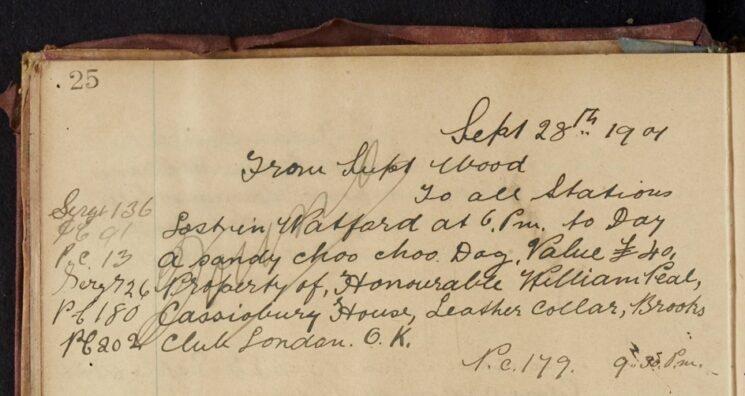 25
Sept 28th 1901
From Supt Wood
To all Stations
Sergt 136
PC 91 Lost in Watford at 6 Pm. to Day
P.C. 13 a sandy choo choo Dog, Value £40,
Sergt 26 Property of, Honourable William Peal,
PC 180 Cassiobury House, Leather Collar, Brooks
PC 202 Club London. O.K.
P.c. 179. 9.35 P.m.